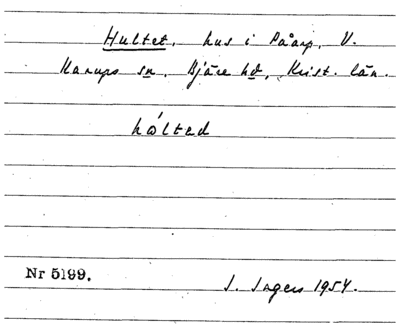 Hultet, hus i Påarp, V.
Karups sn, Bjäre hd, Krist. län.
hólted
Nr 5199.
I. Ingers 1954.